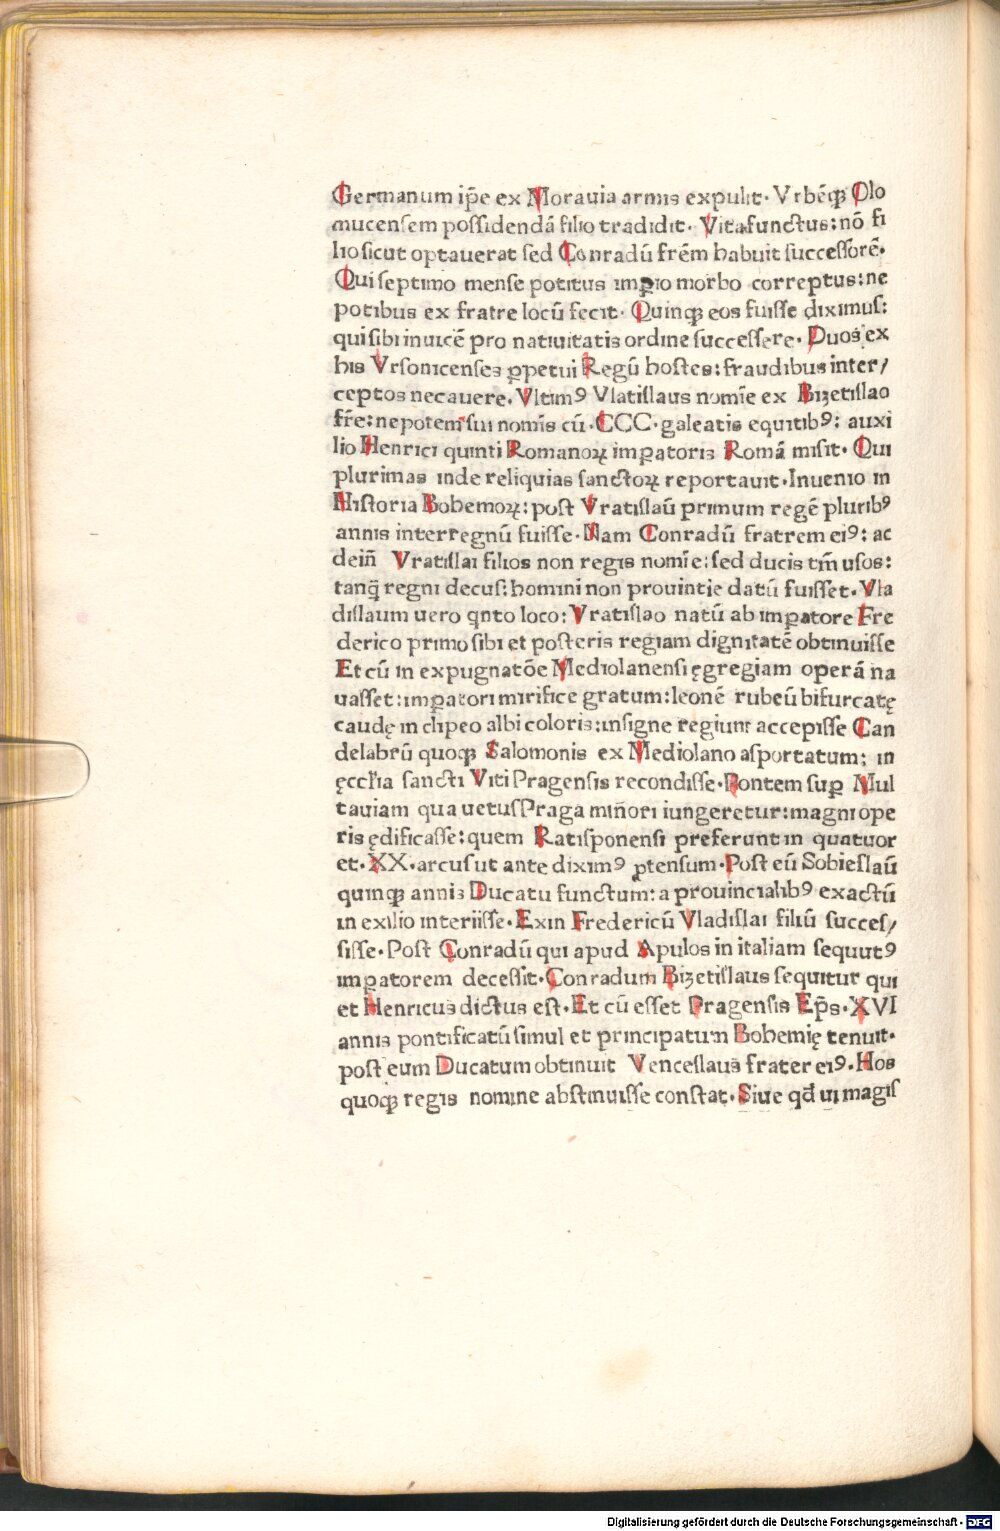 Germanum ip̄e ex Morauia armis expulit· Vrbēqꝫ Olo
mucensem possidendā filio tradidit· Vitafunctus: nō fi
lio sicut optauerat sed Conradū frēm habuit successorē·
Qui septimo mense potitus imꝑio morbo correptus: ne
potibus ex fratre locū fecit· Quinqꝫ eos fuisse diximus:
qui sibi inuicē pro natiuitatis ordine successere· Duos ex
his Vrsonicenses ꝑpetui Regū hostes: fraudibus inter/
ceptos necauere. Vltimꝰ Vlatislaus nomīe ex Bizetislao
fr̄e: nepotem sui nomīs cū ·CCC· galeatis equitibꝰ: auxi
lio Henrici quinti Romanoꝝ imꝑatoris Romā misit· Qui
plurimas inde reliquias sanctoꝝ reportauit· Inuenio in
Historia Bohemoꝝ: post Vratislaū primum regē pluribꝰ
annis interregnū fuisse· Nam Conradū fratrem eiꝰ: ac
deiñ Vratislai filios non regis nomīe: sed ducis tm̄ usos:
tanq̄ regni decus: homini non prouintie datū fuisset· Vla
dislaum uero qnto loco: Vratislao natū ab imꝑatore Fre
derico primo sibi et posteris regiam dignitatē obtinuisse
Et cū in expugnatōe Mediolanensi ęgregiam operā na
uasset: imꝑatori mirifice gratum: leonē rubeū bifurcatę
caudę in clipeo albi coloris: insigne regium accepisse Can
delabrū quoqꝫ Salomonis ex Mediolano asportatum: in
ęccľia sancti Viti Pragensis recondisse· Pontem suꝑ Mul
tauiam qua uetus Praga miñori iungeretur: magni ope
ris ędificasse: quem Ratisponensi preferunt in quatuor
et· XX· arcus ut ante diximꝰ ꝓtensum· Post eū Sobieslaū
quinqꝫ annis Ducatu functum: a prouincialibꝰ exactū
in exilio interiisse· Exin Fredericū Vladislai filiū succes/
sisse· Post Conradū qui apud Apulos in italiam sequutꝰ
imꝑatorem decessit· Conradum Bizetislaus sequitur qui
et Henricus dictus est· Et cū esset Pragensis Ep̄s· XVI
annis pontificatū simul et principatum Bohemię tenuit·
post eum Ducatum obtinuit Venceslaus frater eiꝰ. Hos
quoqꝫ regis nomine abstinuisse constat· Siue qđ ui magis
Digitalisierung gefördert durch die Deutsche Forschungsgemeinschaft - DFG